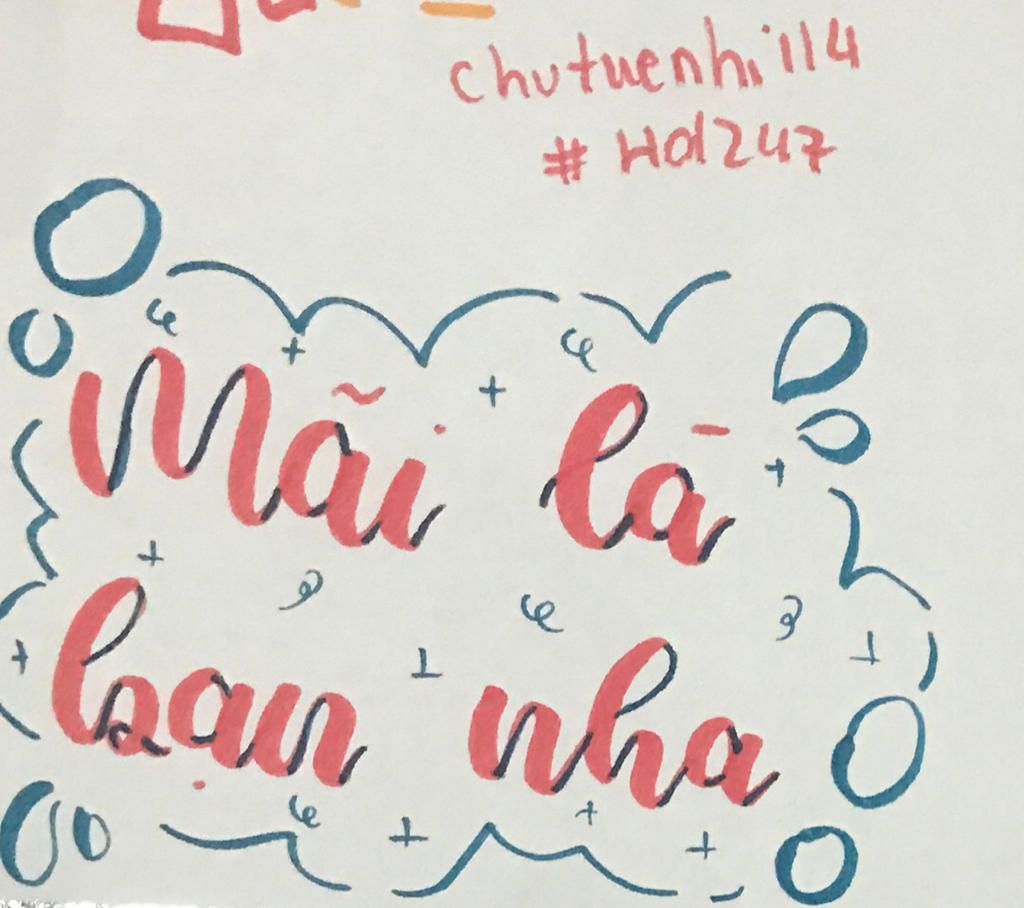 chutuenhi114
# Hol247
Mãi là
bạn nha